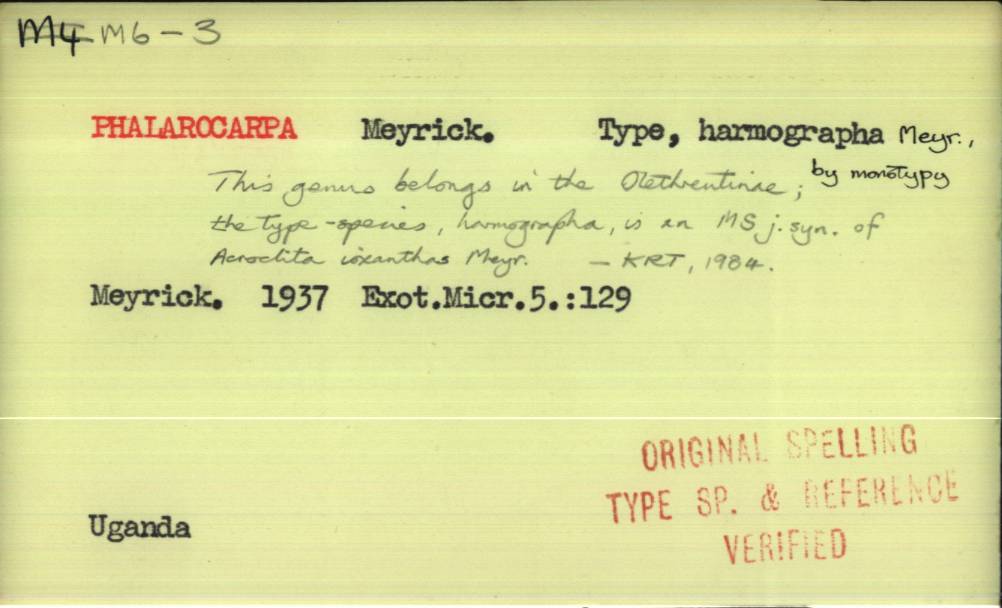 M4 M6-3
PHALAROCARPA Meyrick. Type, harmographa Meyr.,
by monotypy
This genus belongs in the Olethreutinae;
the type-species, harmographa, is an MS j. syn. of
Acroclita ioxanthas Meyr. — KRT, 1984.
Meyrick. 1937 Exot.Micr.5.:129
ORIGINAL SPELLING
TYPE SP. & REFERENCE
VERIFIED
Uganda